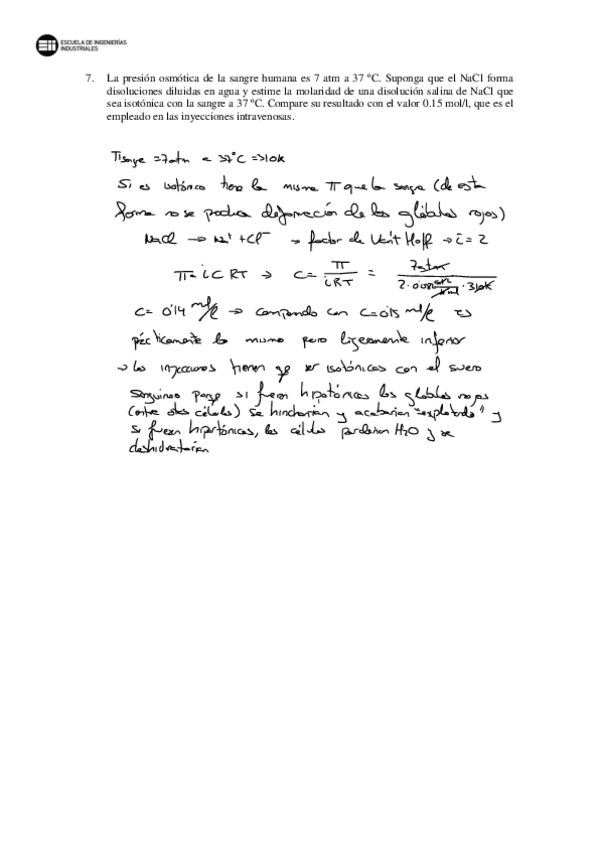 ESCUELA DE INGENIERÍAS
INDUSTRIALES
7. La presión osmótica de la sangre humana es 7 atm a 37 ºC. Suponga que el NaCl forma
disoluciones diluidas en agua y estime la molaridad de una disolución salina de NaCl que
sea isotónica con la sangre a 37 ºC. Compare su resultado con el valor 0.15 mol/l, que es el
empleado en las inyecciones intravenosas.
Πsangre = 7atm a 37°C => 310K
Si es isotónico tiene la misma Π que la sangre (de esta
forma no se produce deformación de los glóbulos rojos)
NaCl → Na⁺ + Cl⁻ → factor de Van't Hoff → i = 2
Π = i C R T → C = Π / iRT = 7atm / 2 · 0.082 · 310K
C = 0'14 mol/l → comparando con C = 0'15 mol/l es
prácticamente lo mismo pero ligeramente inferior
→ Las inyecciones tienen que ser isotónicas con el suero
sanguíneo porque si fueran hipotónicas los glóbulos rojos
(entre otras células) se hincharían y acabarían "explotando" y
si fueran hipertónicas, las células perderían H₂O y se
deshidratarían